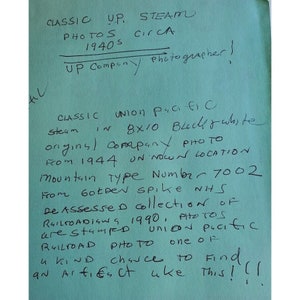 CLASSIC UP. STEAM
PHOTOS CIRCA
1940s
UP Company photographer!
CLASSIC UNION PACIFIC
Steam IN 8X10 Black & white
original Company PHOTO
FROM 1944 UNKNOWN LOCATION
Mountain Type Number 7002
FROM GOLDEN SPIKE NHS
DeAssessed Collection OF
Railroadiana 1990. PHOTOS
are STAMPED UNION PACIFIC
RAILROAD PHOTO ONE OF
a KIND chance to FIND
AN Artifact LIKE THIS!!!